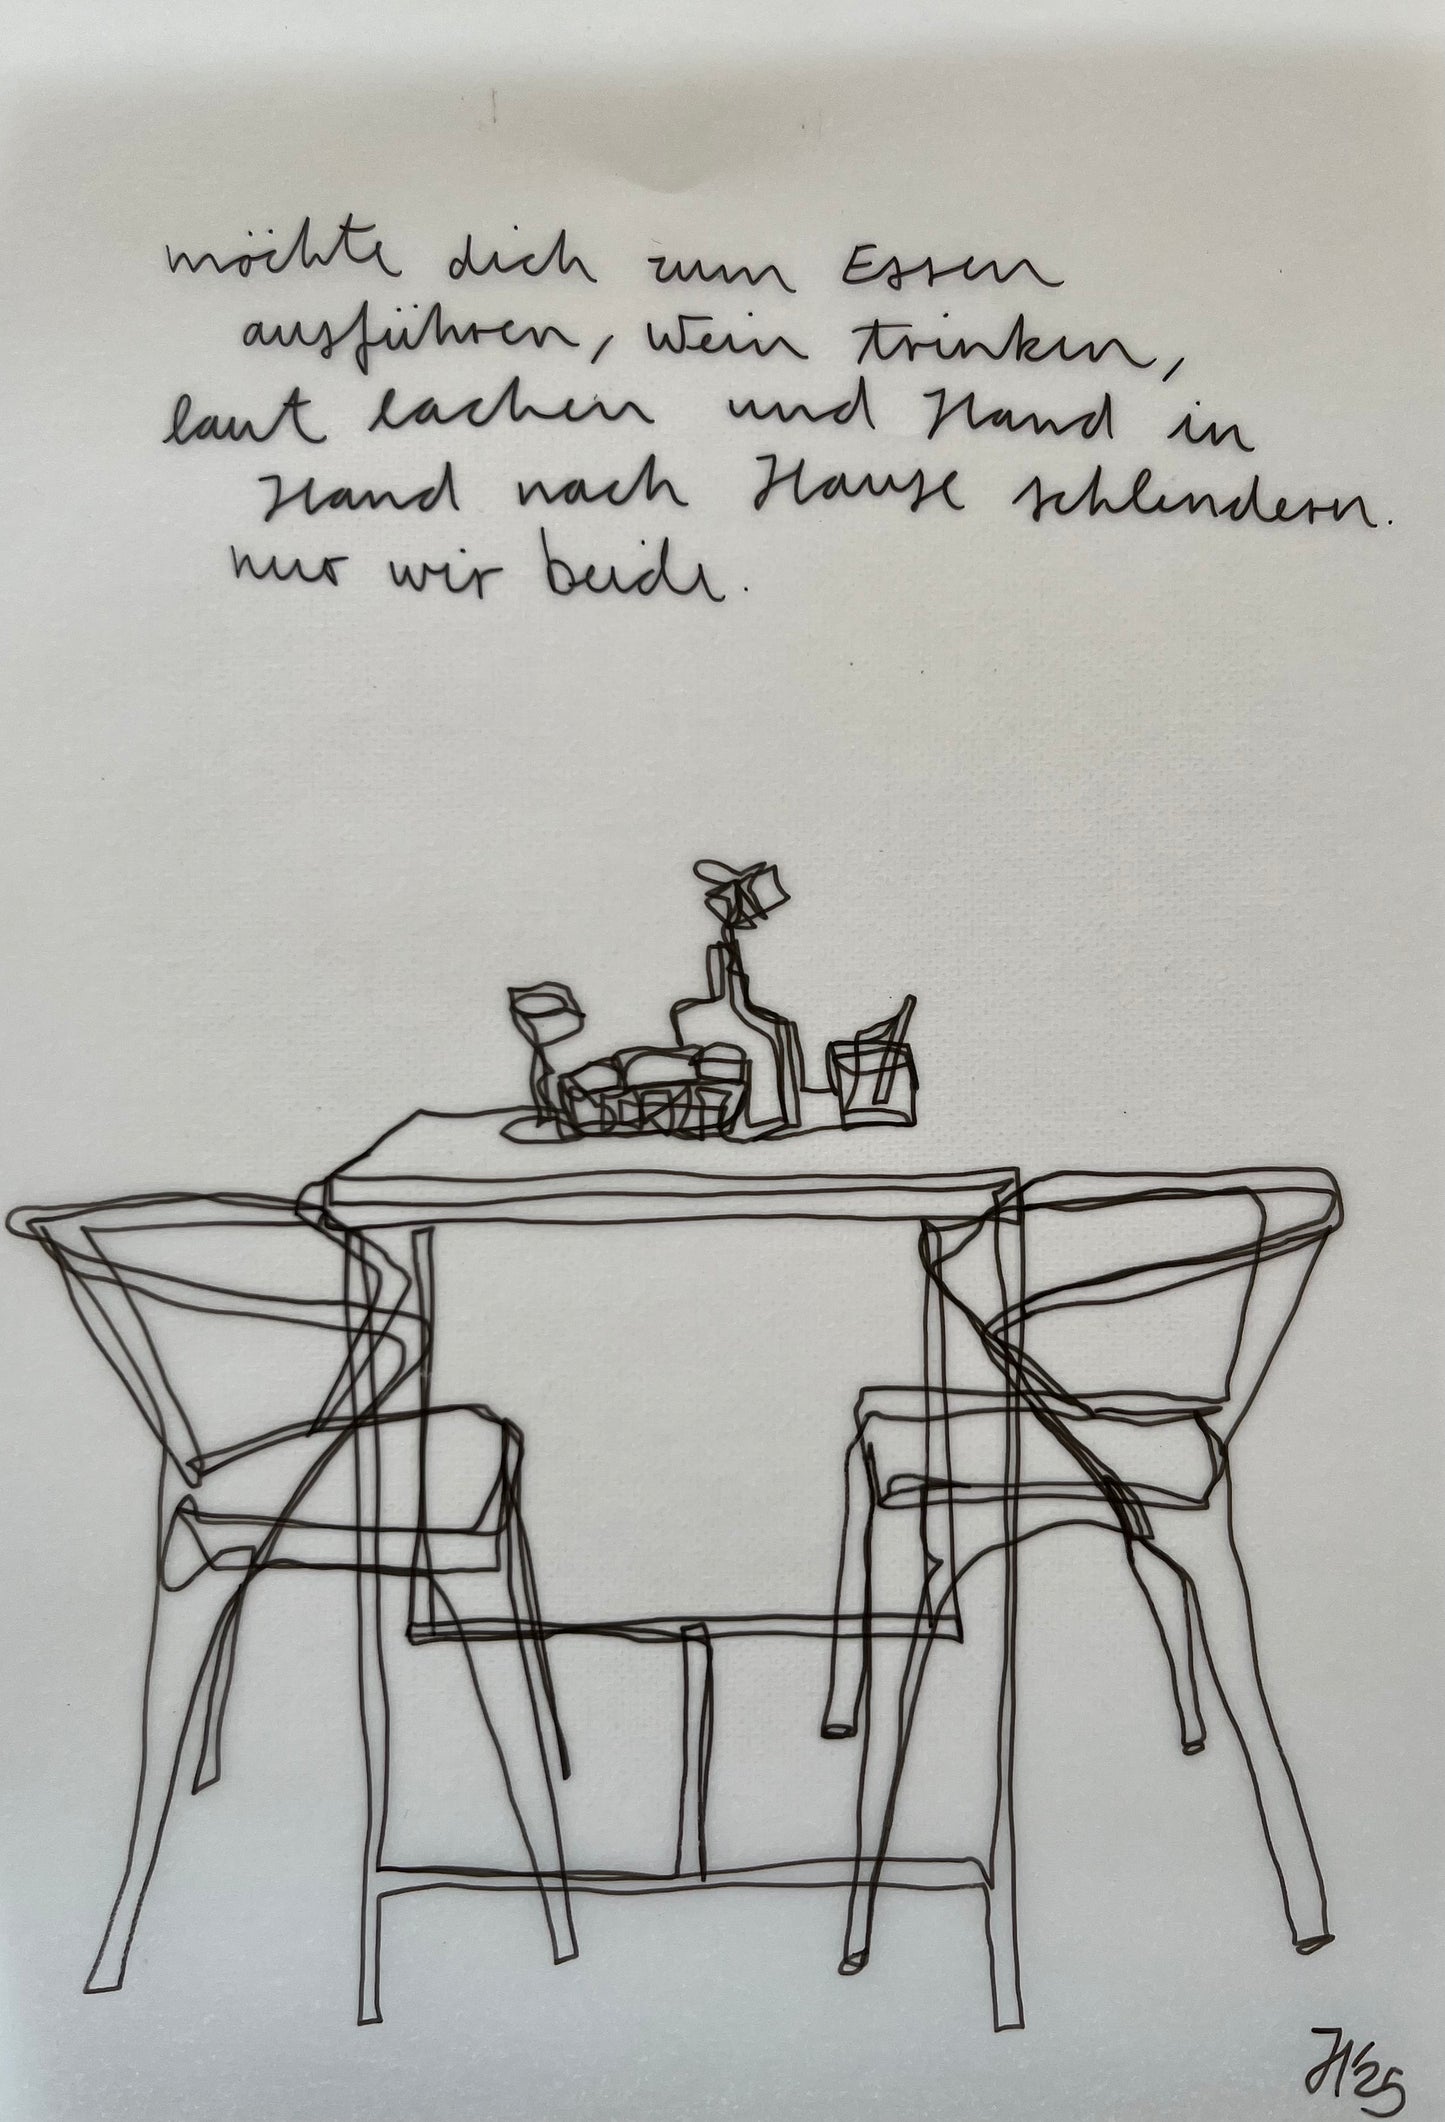 möchte dich zum Essen
ausführen, Wein trinken,
laut lachen und Hand in
Hand nach Hause schlendern.
nur wir beide.
JK'25